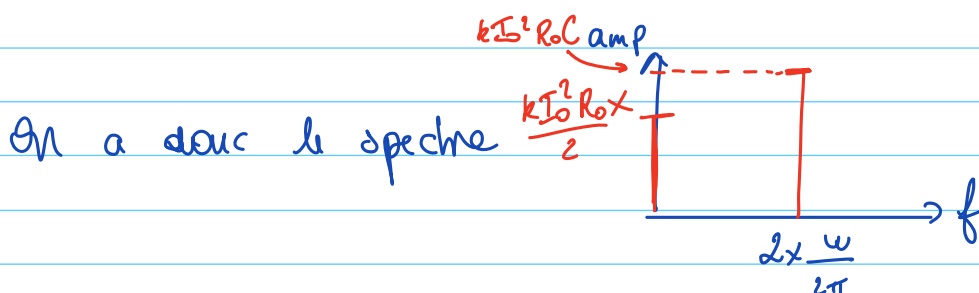 kI₀²R₀C amp
On a donc le spectre kI₀²R₀x / 2
f
2x ω / 2π